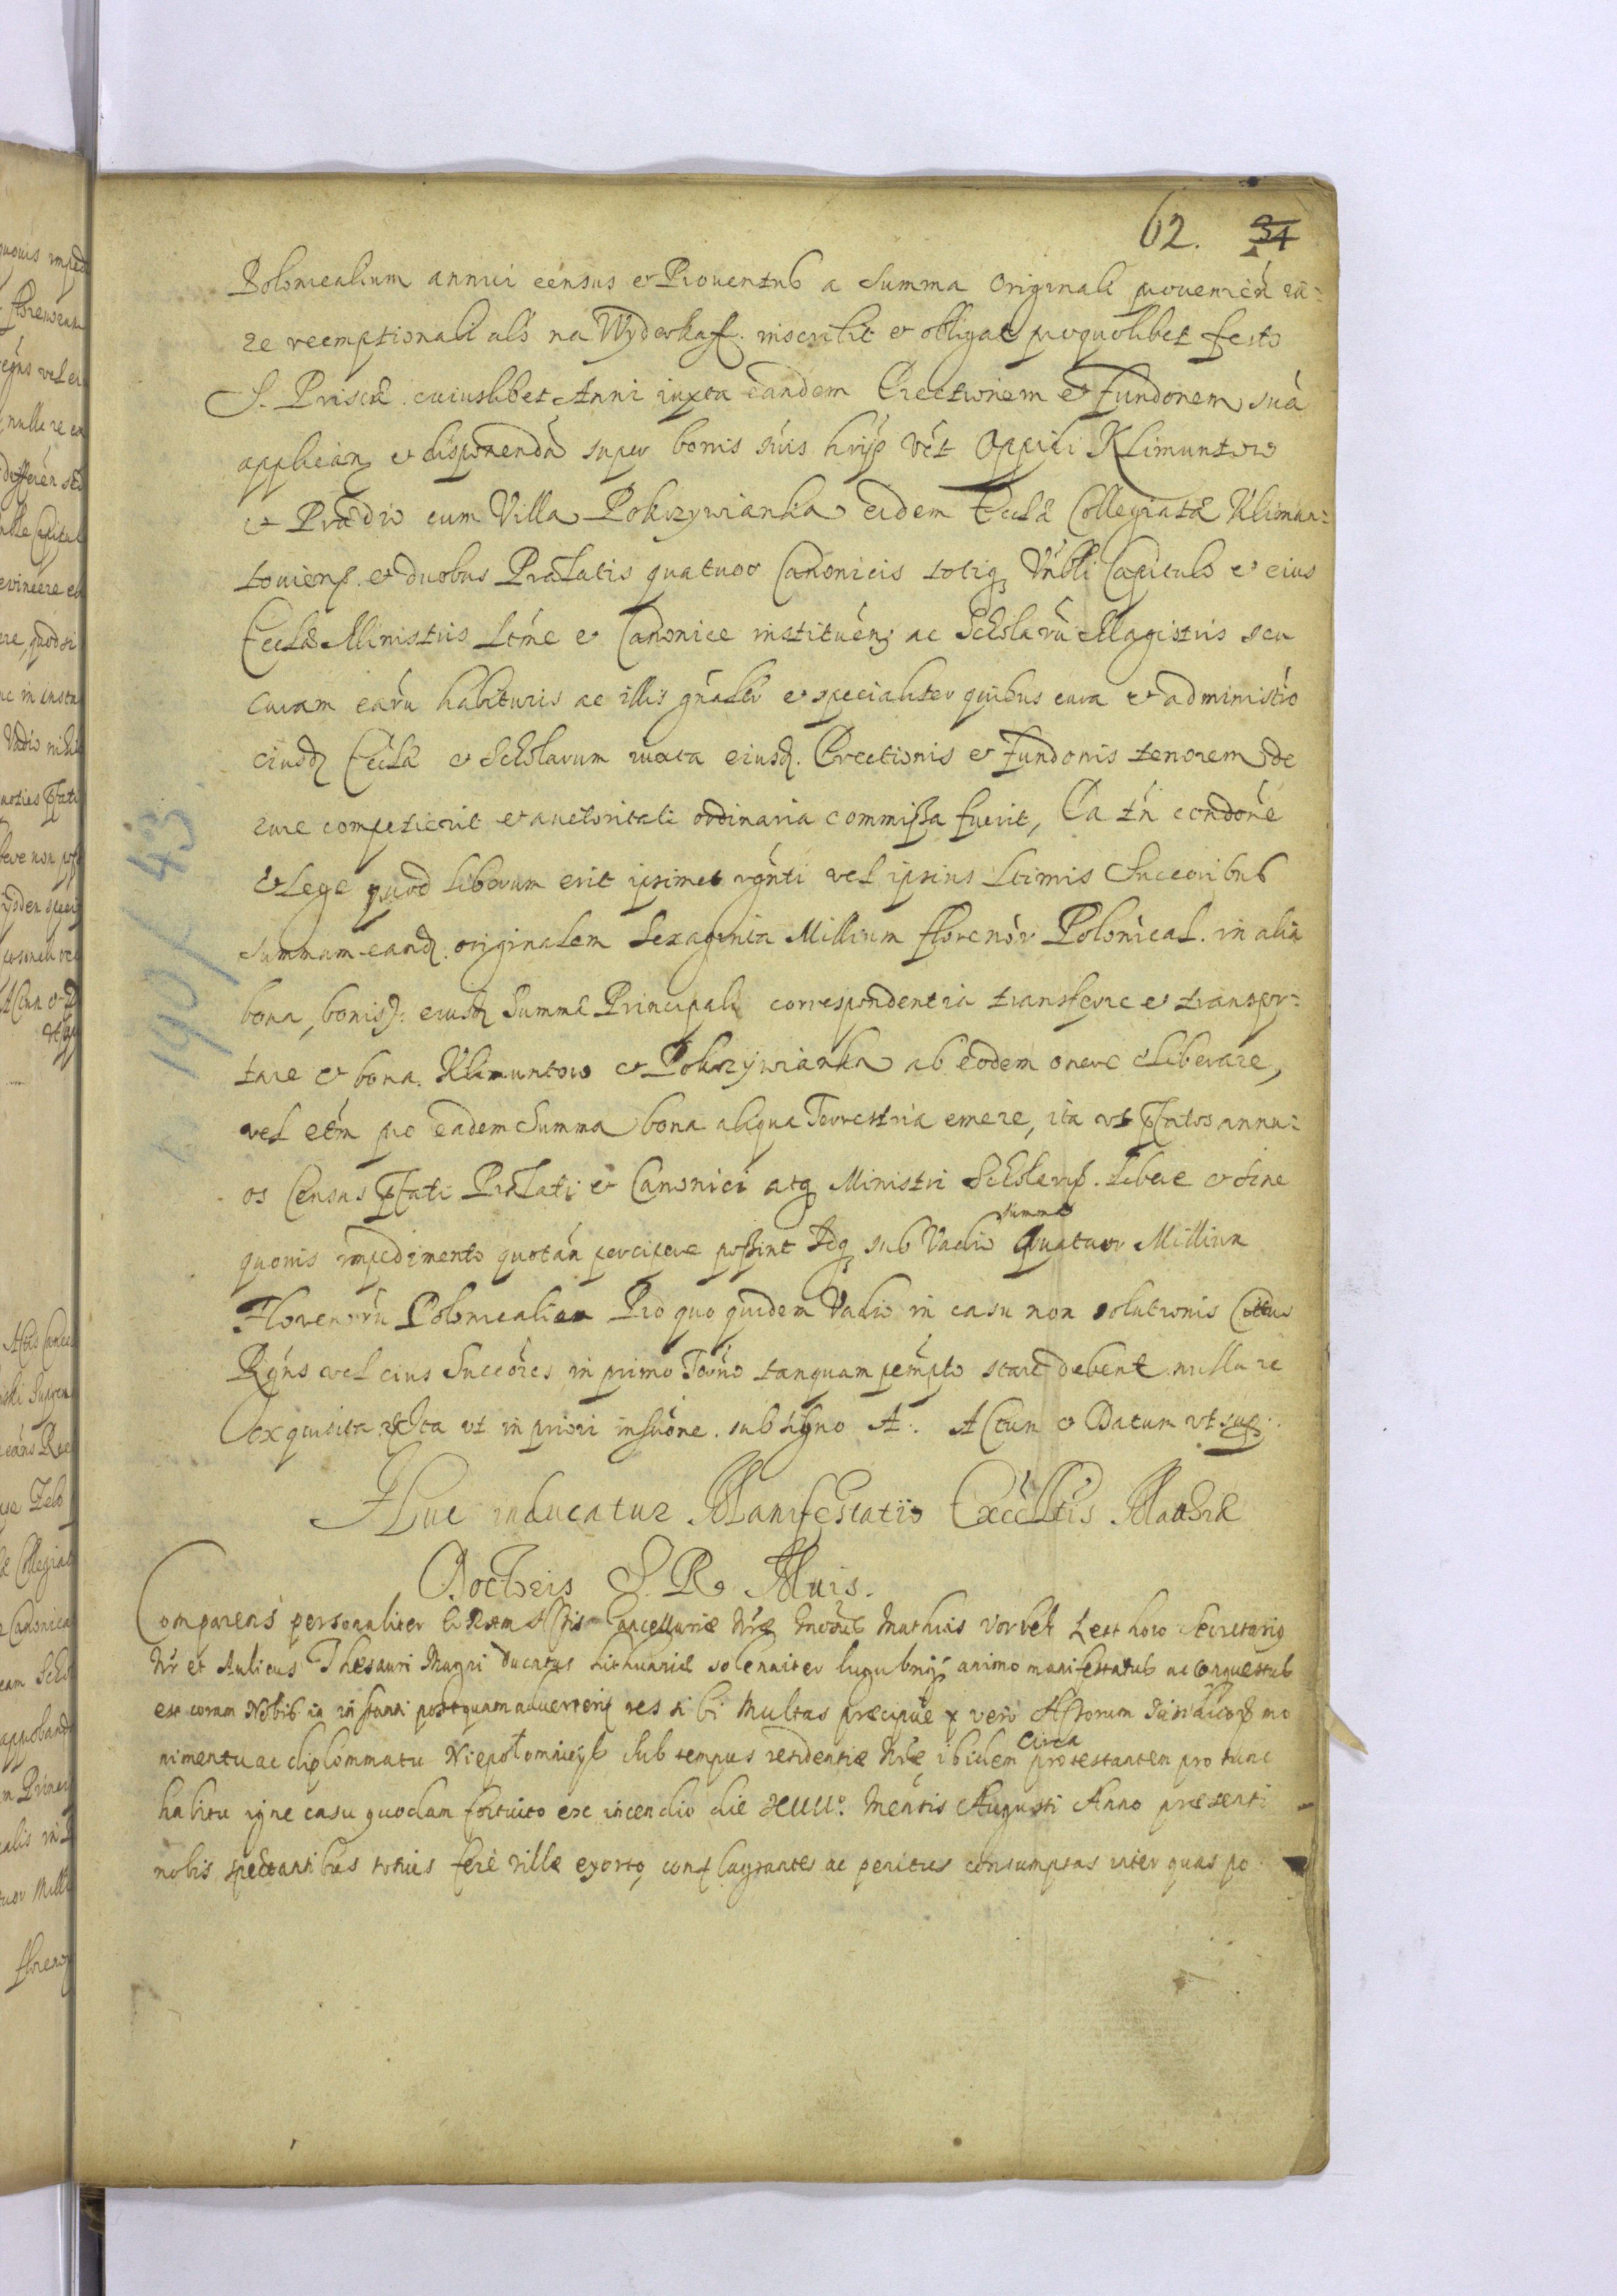 62. 34
Polonicalium annui census et Prouentus a Summa Originali prouenien̄ iu=
re reemptionali als na Wyderkaf. inscribit et obligat pro quolibet festo
S. Priscæ cuiuslibet Anni iuxta eandem Erectionem et Fundonem sua
applican et disponenda super bonis suis hrijs vt Oppidi Klimuntow
et Prædio cum Villa Pokrzywianka eidem Ecclæ Collegiatæ Klimun=
touiens. et duobus Prælatis quatuor Canonicis totiq Vnbli Capitulo et eius
Ecclæ Ministris Ltme et Canonice instituen ac Scholarū Magistris seu
curam earū habituris ac illis gnalr et specialiter quibus cura et administio
eiusd Ecclæ et Scholarum iuxta eiusd. Erectionis et Fundonis tenorem de
iure competierit et auctoritate ordinaria commissa fuerit, Ea tn̄ condone
et Lege quod liberum erit ipsimet rgnti vel ipsius Ltimis Succoribus
summam eand. originalem Sexaginta Millium florenor Polonical. in alia
bona, bonis eiusd Summæ Principali correspondentia transferre et transpor=
tare et bona Klimuntow et Pokrzywianka ab eodem onere liberare,
vel etm pro eadem Summa bona aliqua Terrestria emere, ita vt pfatos annu=
os Census pfati Prælati et Canonici atq Ministri Scholarus. libere et sine
quouis impedimento quotan percipere possint Idq sub Vadio summæ Quatuor Millium
Florenorū Polonicaliu Pro quo quidem Vadio in casu non solutionis Citatus
Rgns vel eius Succores in primo Termo tanquam pempto stare debent nulla re
exquisita Ita vt in priori inscrone. sub signo A. Actum et Datum vt sup.
Huc inducatur Manifestatio Excelltis Mathiæ
S. R. Mtis.
Comparens personaliter Actis Cancellariæ Nræ Mathias Vorbek Letthow Secretarig
Nr et Aulicus Thesauri Magni Ducatus Lithuaniæ solenniter lugubrijs animo manifestatus ac conquestus
est coram Nobis in instanti postquam aduerterit res sibi multas præcipue vero Actorum mo
nimentu ac diplommatu Niepołomnicijs sub tempus residentiæ Nræ ibidem circa protestantem pro tunc
habitu igne casu quodam fortuito ex incendio die Mensis Augusti Anno præsenti
nobis spectantibus totius fere villæ exorto, conflagrantes ac penitus consumptas inter quas po